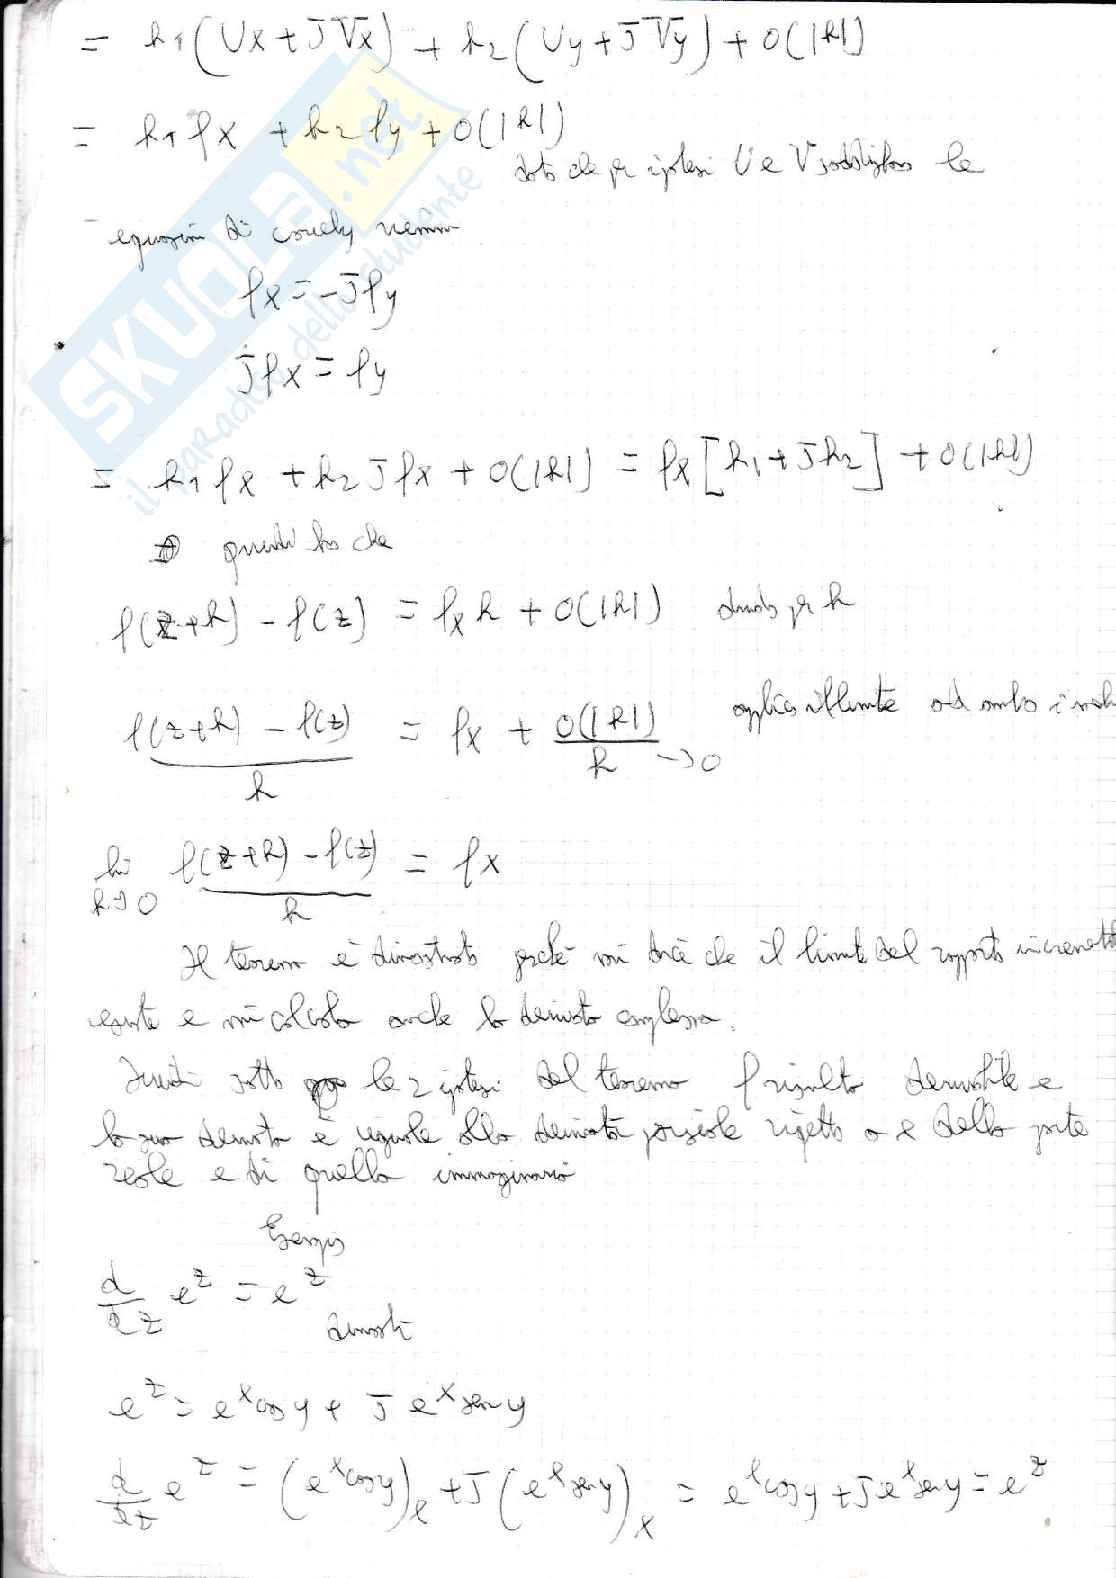 = h1(Ux+JVx) + h2(Uy+JVy)+o(|h|)
= h1fx + h2fy + o(|h|)
dato che per ipotesi U e V soddisfano le
equazioni di
fx=-Jfy
Jfx=fy
= h1fx + h2Jfx + o(|h|) = fx[h1+Jh2] + o(|h|)
quindi ho che
f(z+h) - f(z) = fxh + o(|h|) divido per h
f(z+h) - f(z) / h = fx + o(|h|) / h → 0 applico il limite ad ambo i
lim h→0 f(z+h) - f(z) / h = fx
Il teorema è dimostrato perché mi dice che il limite del rapporto
esiste e mi calcola anche la derivata complessa.
Quindi sotto le 2 ipotesi del teorema f risulta derivabile e
la sua derivata è uguale alla derivata parziale rispetto a x della parte
reale e di quella immaginaria
Esempio
d/dz e^z = e^z
e^z = e^x cos y + J e^x sen y
d/dz e^z = (e^x cos y)x + J(e^x sen y)x = e^x cos y + J e^x sen y = e^z
SKUOLA.net
il paradiso dello studente